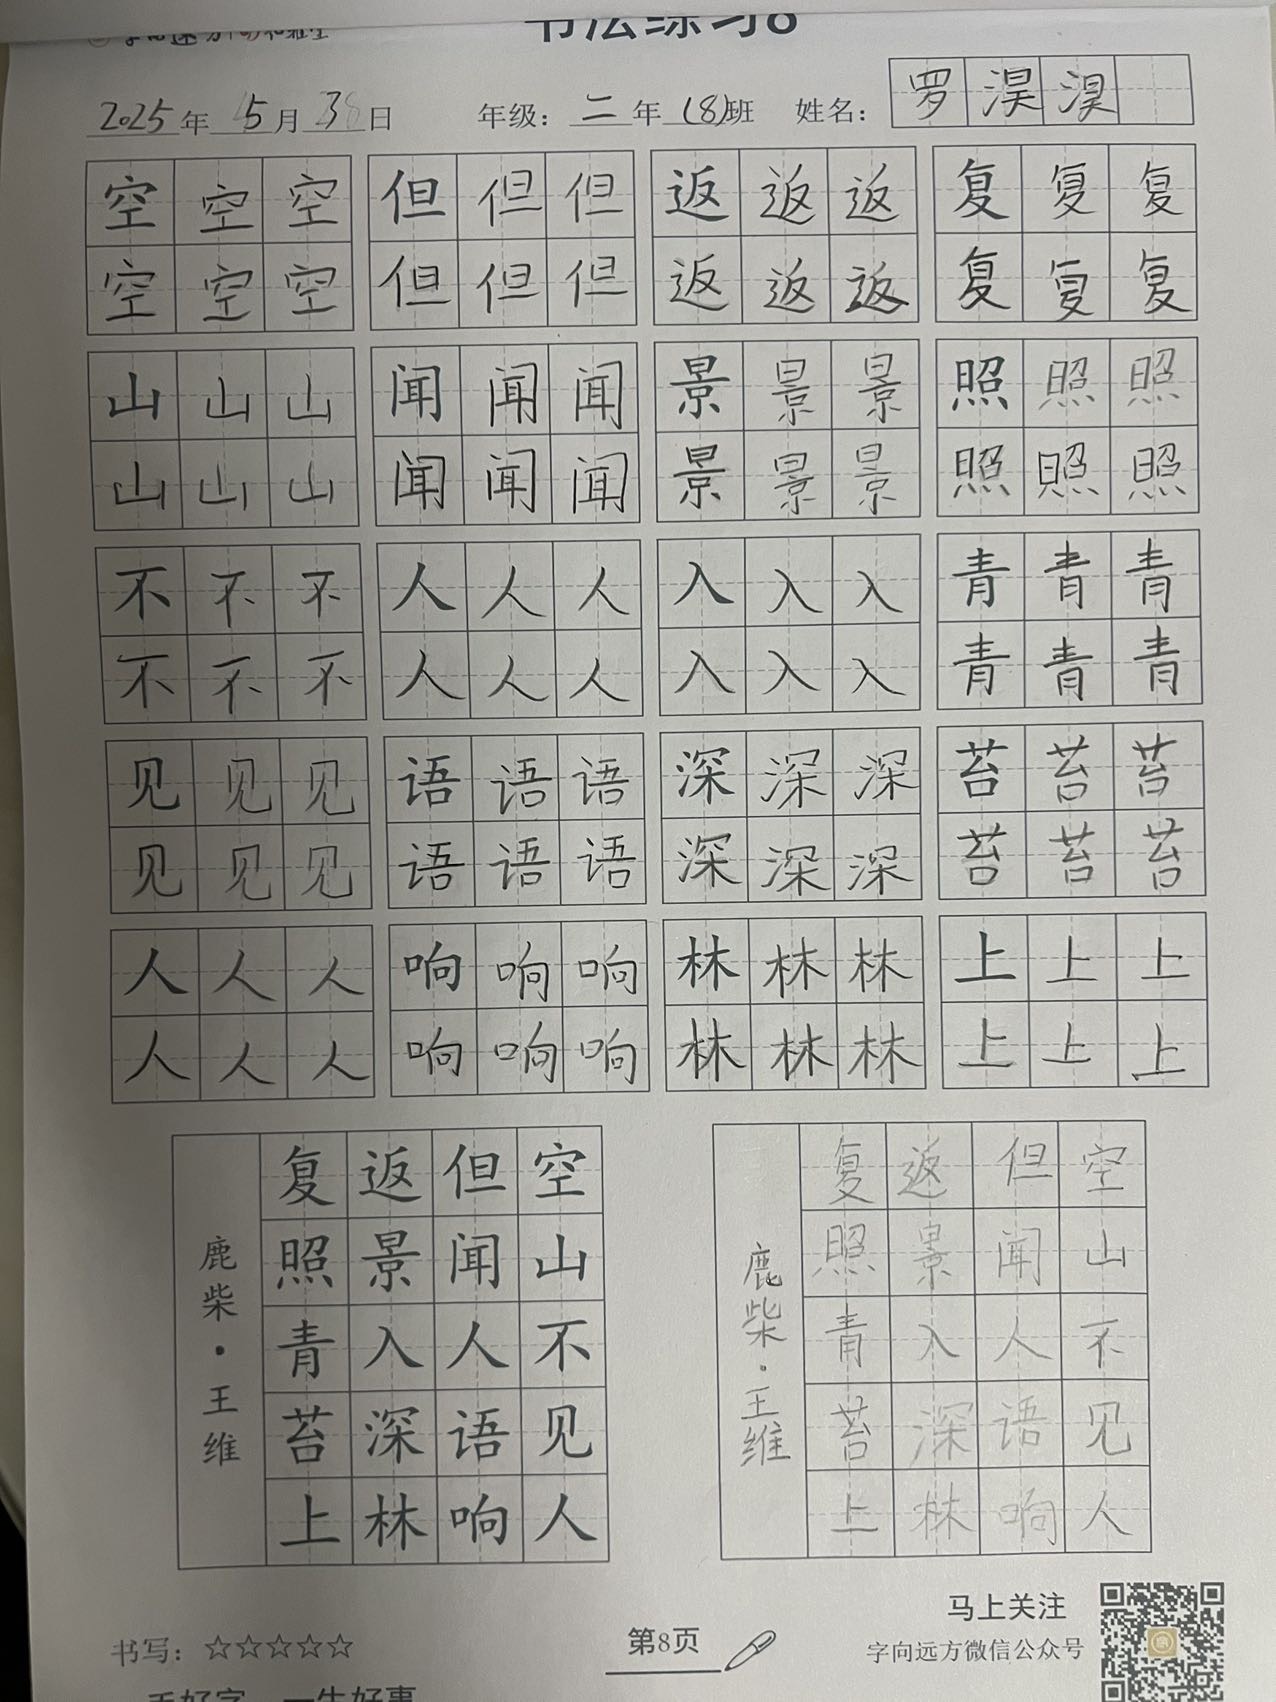 书法练习8
2025年 5月 3日 年级：二年(8)班 姓名：罗淏淏
空空空 但但但 返返返 复复复
空空空 但但但 返返返 复复复
山山山 闻闻闻 景景景 照照照
山山山 闻闻闻 景景景 照照照
不不不 人人人 入入入 青青青
不不不 人人人 入入入 青青青
见见见 语语语 深深深 苔苔苔
见见见 语语语 深深深 苔苔苔
人人人 响响响 林林林 上上上
人人人 响响响 林林林 上上上
空山不见人
但闻人语响
返景入深林
复照青苔上
鹿柴·王维
空山不见人
但闻人语响
返景入深林
复照青苔上
鹿柴·王维
书写：☆☆☆☆☆
第8页
马上关注
字向远方微信公众号
一手好字 一生好事